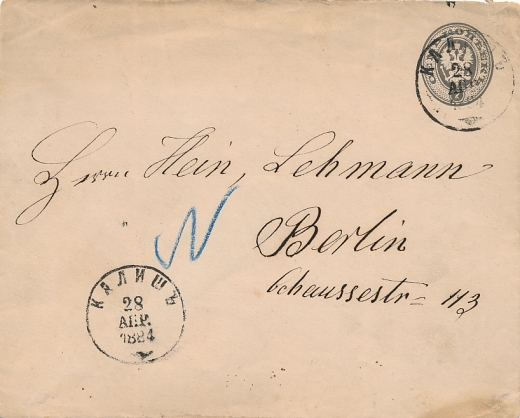 КАЛИШЪ
28
АПР.
Herrn Hein, Lehmann
Berlin
Chausseestr= 113
КАЛИШЪ
28
АПР.
1884